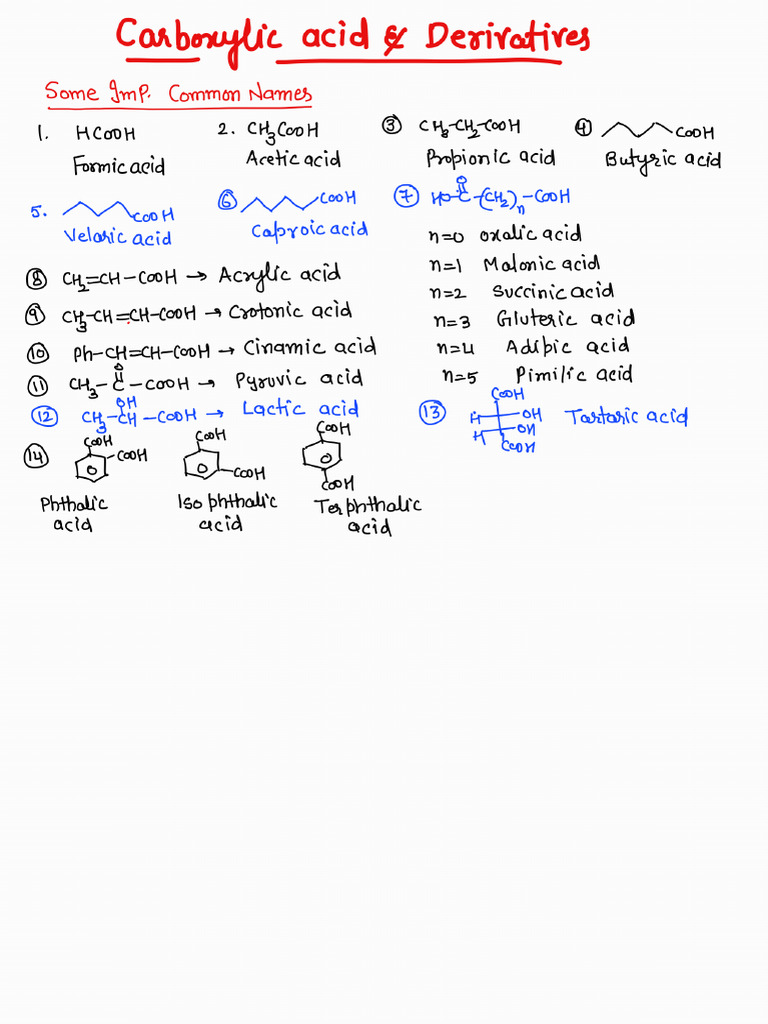 Carboxylic acid & Derivatives
Some Imp. Common Names
1. HCOOH
Formic acid
2. CH3COOH
Acetic acid
③ CH3-CH2-COOH
Propionic acid
④ COOH
Butyric acid
5. COOH
Velaric acid
⑥ COOH
Caproic acid
⑦ HO-C-(CH2)n-COOH
O
n=0 oxalic acid
n=1 Malonic acid
n=2 Succinic acid
n=3 Gluteric acid
n=4 Adipic acid
n=5 Pimilic acid
⑧ CH2=CH-COOH → Acrylic acid
⑨ CH3-CH=CH-COOH → Crotonic acid
⑩ Ph-CH=CH-COOH → Cinamic acid
O
⑪ CH3-C-COOH → Pyruvic acid
OH
⑫ CH3-CH-COOH → Lactic acid
⑬ COOH
H OH Tartaric acid
H OH
COOH
⑭ COOH
COOH
Phthalic
acid
COOH
COOH
Iso phthalic
acid
COOH
COOH
Terphthalic
acid